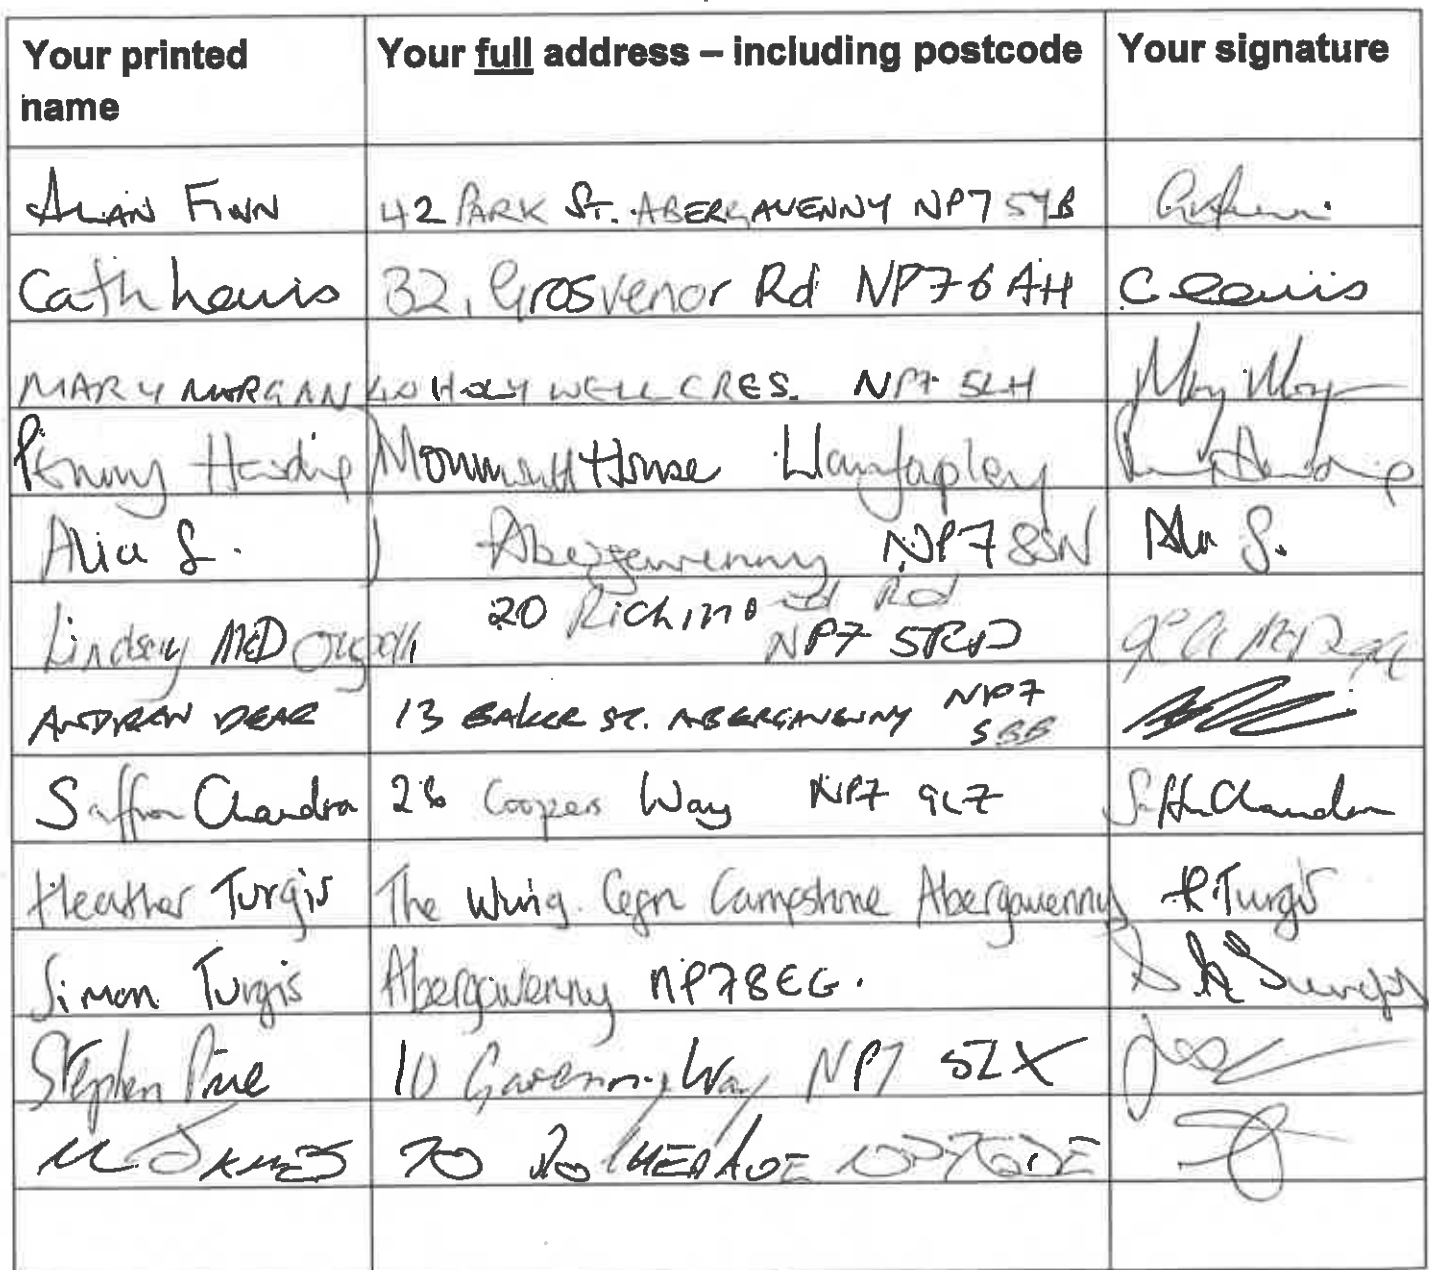 Your printed name
Your full address – including postcode
Your signature
ALAN FINN 42 PARK ST. ABERGAVENNY NP7 5YB
Cath Lewis 32, Grosvenor Rd NP7 6AH C Lewis
MARY MORGAN 40 HOLYWELL CRES. NP7 5LH
Penny Monmouth House Llanfapley
Alia S. Abergavenny NP7 8SN
Lindsay 20 Richmond Rd
NP7
ANDREW DEAR 13 BAKER ST. ABERGAVENNY NP7
5BB
Saffron Chandra Coopers Way NP7 9LZ Chandra
Heather Turgis The Wing. Cefn Campstone Abergavenny Turgis
Simon Turgis Abergavenny NP7 8EG.
Stephen 10 Gavenny Way NP7 5ZX
JAMES 70